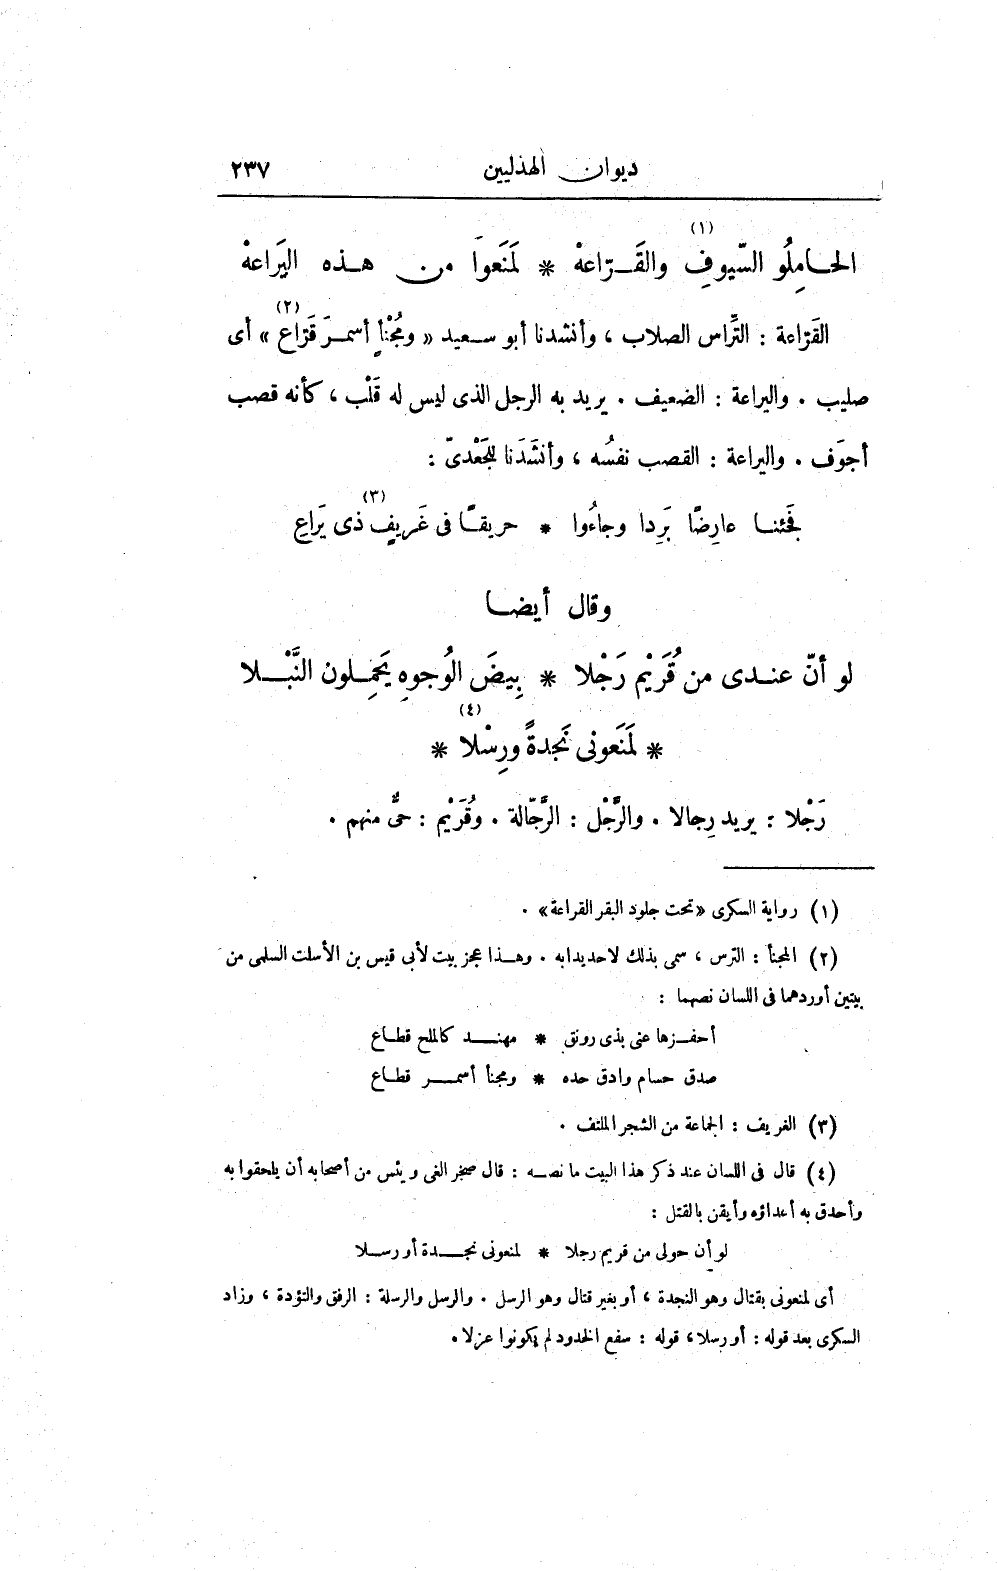 ديوان الهذليين ٢٣٧
(١)
الحـامِلُو السّيوفِ والقَـرّاعهْ * لَمَنَعوا من هـذه اليَراعهْ
(٢)
القَرّاعة : التِّراس الصلاب ، وأنشدنا أبو سعيد « ومُجْنَأٍ أسمرَ قَرّاعِ » أى
صليب . واليراعة : الضعيف . يريد به الرجل الذى ليس له قَلْب ، كأنه قصب
أجوَف . واليراعة : القصب نفسُه ، وأنشَدَنا للجَعْدىّ :
(٣)
فجَئنـا عارِضًا بَرِدا وجاءُوا * حريقًا فى غَريفٍ ذى يَراعِ
وقال أيضـا
لو أنّ عنـدى من قُرَيْمٍ رَجْلا * بِيضَ الوُجوهِ يَحمِـلون النَّبْـلا
(٤)
* لَمَنَعونى نَجدةً ورِسْلا *
رَجْلا : يريد رِجالا . والرَّجْل : الرَّجّالة . وقُرَيْم : حىٌّ منهم .
(١) رواية السكرى «تحت جلود البقر القراعة» .
(٢) المجنأ : الترس ، سمى بذلك لاحديدابه . وهـذا عجز بيت لأبى قيس بن الأسلت السلمى من
بيتين أوردهما فى اللسان نصهما :
أحفـزها عنى بذى رونق * مهنـد كالملح قطـاع
صدق حسام وادق حده * ومجنأ أسمـر قطـاع
(٣) الغريف : الجماعة من الشجر الملتف .
(٤) قال فى اللسان عند ذكر هذا البيت ما نصـه : قال صخر الغى ويئس من أصحابه أن يلحقوا به
وأحدق به أعداؤه وأيقن بالقتل :
لو أن حولى من قريم رجلا * لمنعونى نجـدة أو رسـلا
أى لمنعونى بقتال وهو النجدة ، أو بغير قتال وهو الرسل . والرسل والرسلة : الرفق والتؤدة ، وزاد
السكرى بعد قوله : أو رسلا، قوله : سفع الخدود لم يكونوا عزلا.